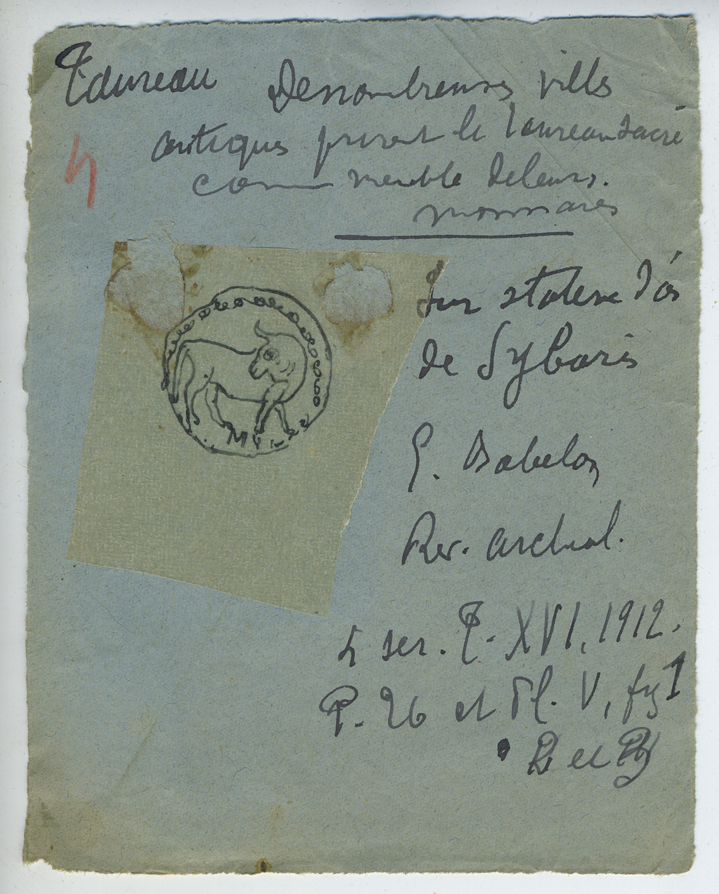 Taureau De nombreuses villes
antiques prirent le taureau sacré
comme meuble de leurs
monnaies
4
Sur statere d'or
de Sybaris
E. Babelon
Rev. archeol.
4 ser. T. XVI, 1912.
P. 26 et Pl. V, fig 1